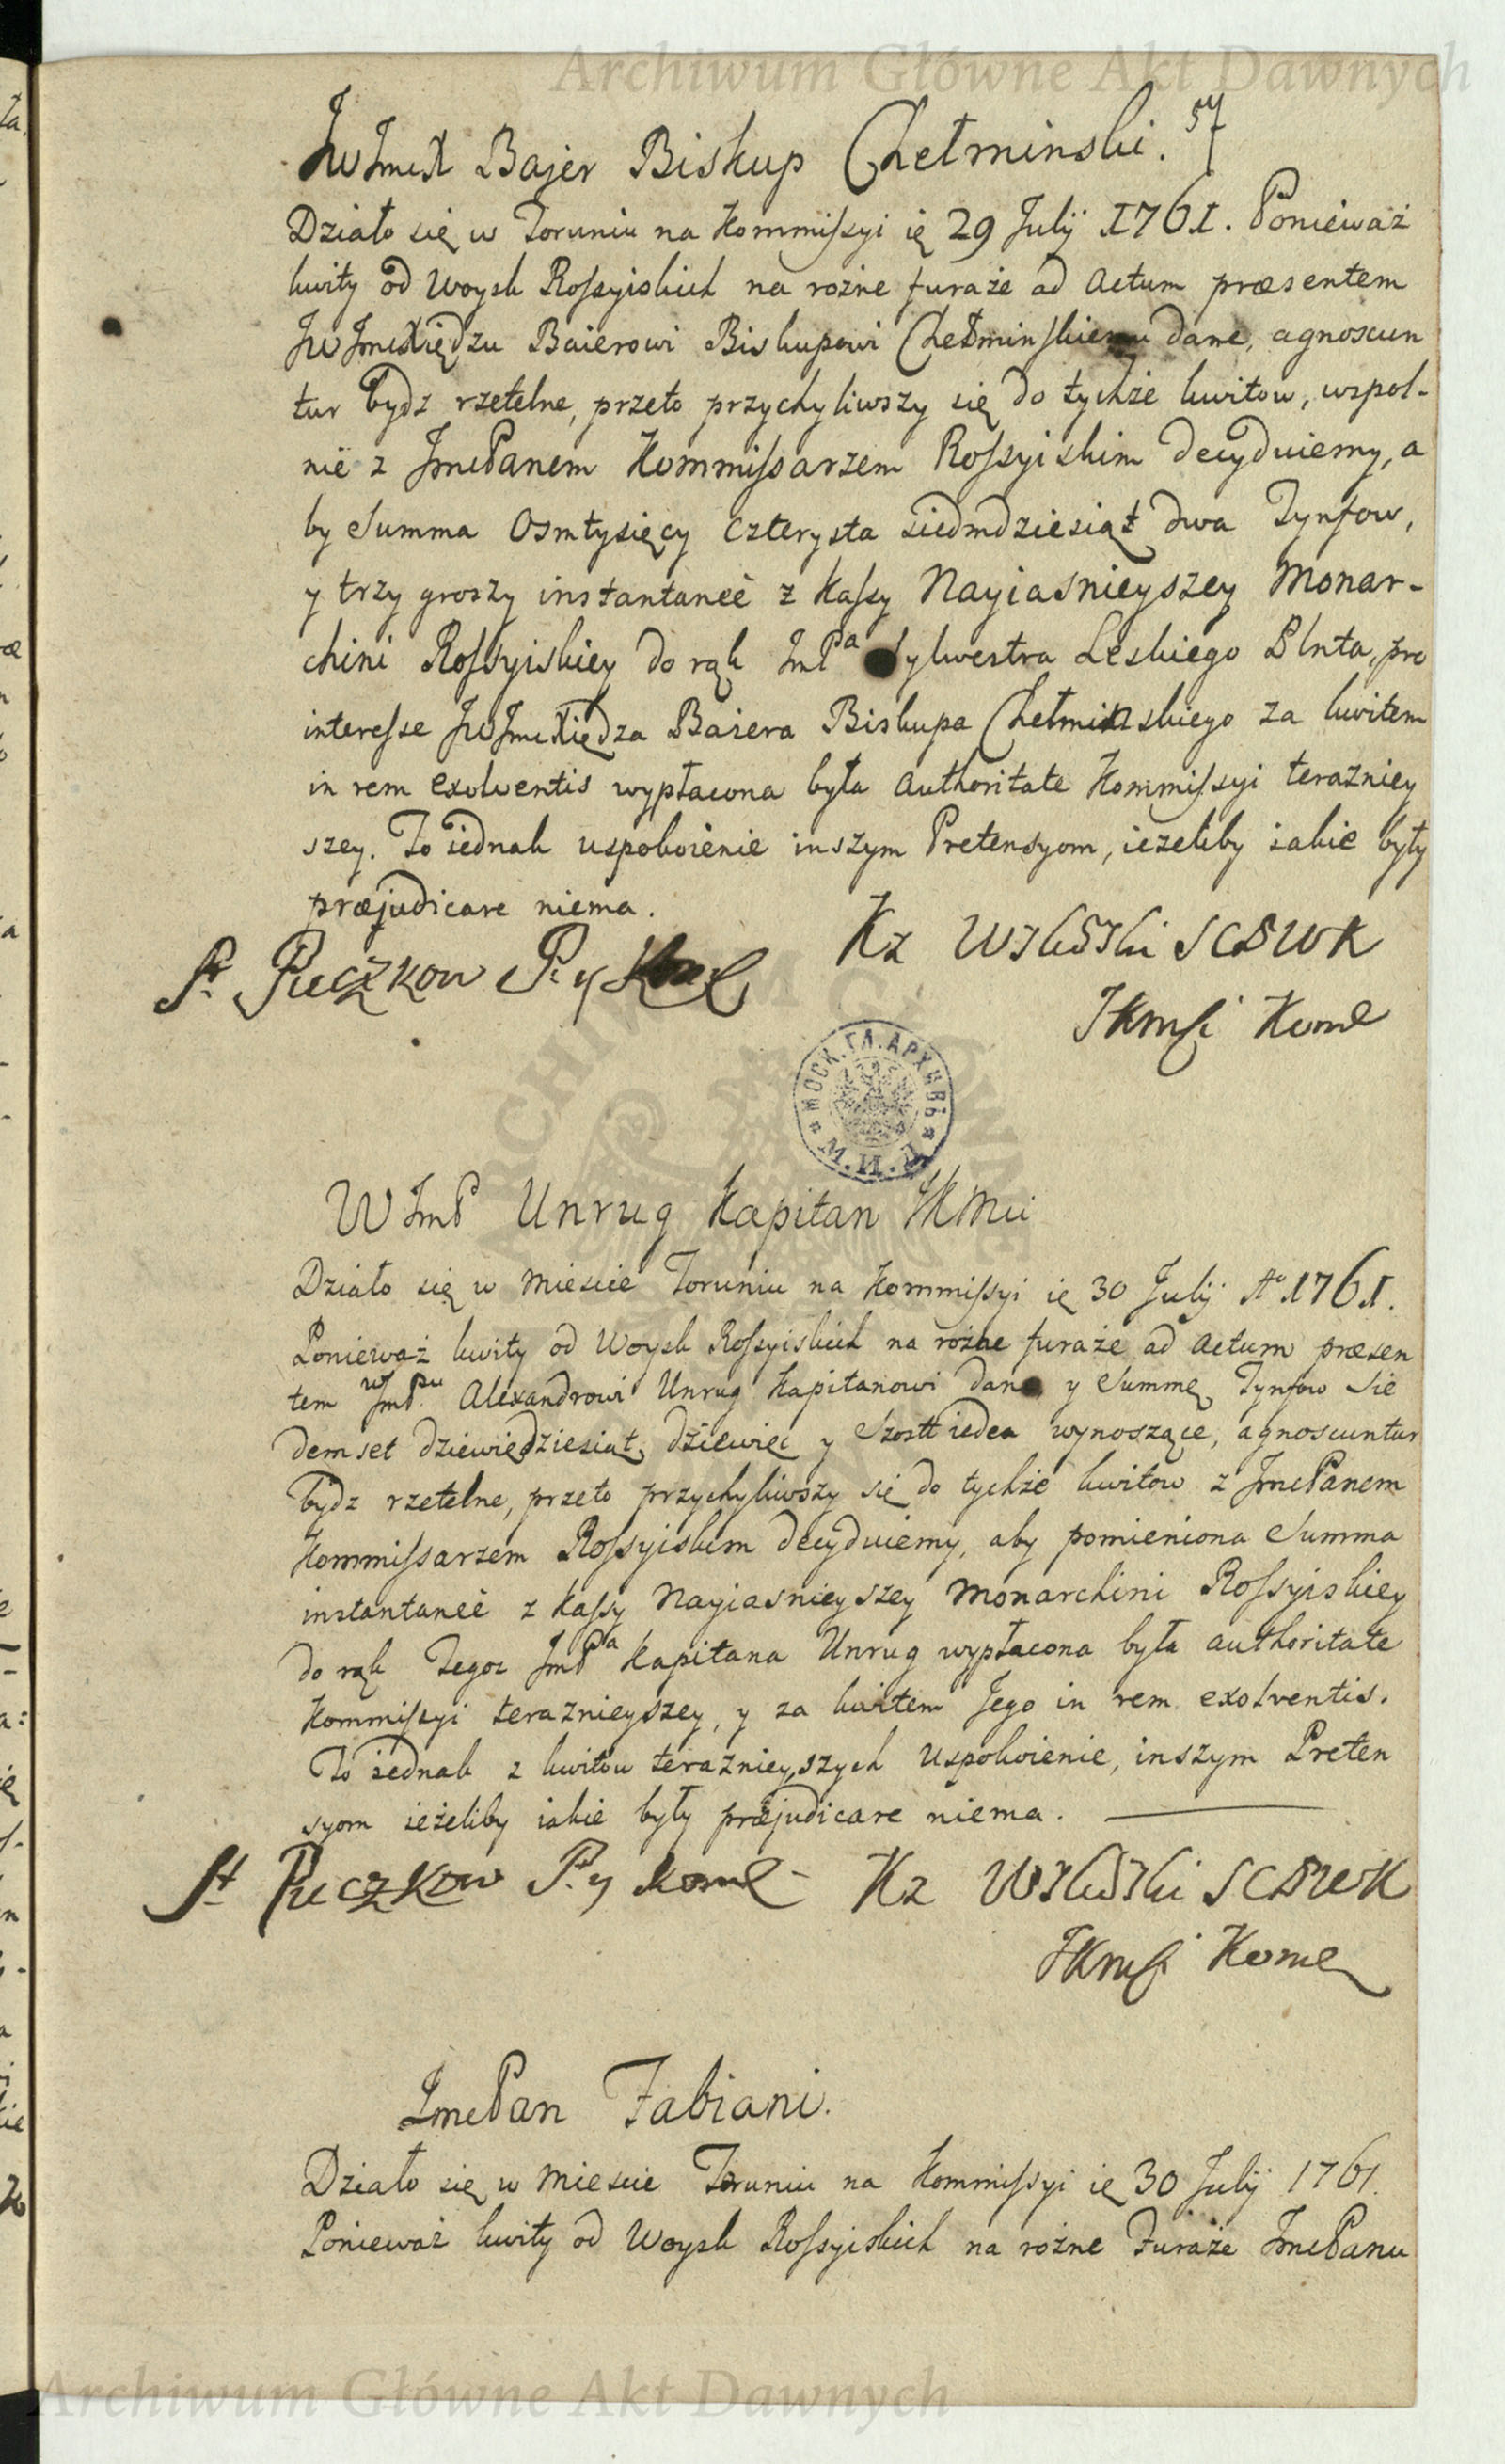 Archiwum Główne Akt Dawnych
57
JWJmćX Bajer Biskup Chełminski.
Działo się w Toruniu na Kommiſsyi ię 29 Julÿ 1761. Ponieważ
kwity od Woysk Roſsyiskich na rożne furaże ad Actum præsentem
JWJmćXiędzu Baierowi Biskupowi Chełminſkiemu dane, agnoscun
tur bydz rzetelne, przeto przychyliwszy się do tychże kwitow, wspol-
nie z JmćPanem Kommiſsarzem Roſsyiskim decyduiemy, a
by Summa Osmtysięcy czterysta siedmdziesiąt dwa Tynfow,
y trzy groszy instantaneè z Kaſsy Nayiasnieyszey Monar-
chini Roſsyiskiey do rąk JmPa Sylwestra Leskiego Plnta, pro
intereſse JWJmćXiędza Baiera Biskupa Chełminskiego za kwitem
in rem exolventis wypłacona była Authoritate Kommiſsyi terazniey
szey. To iednak uspokoienie inszym Pretensyom, ieżeliby iakie były
præjudicare niema.
St Puczkow P. y Kome
Kz Wilski SCBWK
JKmſci Kome
МОСК. ГЛ. АРХИВЪ М.И.Д.
WJmP Unrug Kapitan JKMci
Działo się w Miescie Toruniu na Kommiſsyi ię 30 Julÿ Ao 1761.
Ponieważ kwity od Woysk Roſsyiskich na rożne furaże ad Actum præsen
tem WJmPpu Alexandrowi Unrug Kapitanowi dane, y Summę Tynfow Sie
demset dziewiędziesiąt, dziewięc y Szostk ieden wynoszące, agnoscuntur
bydz rzetelne, przeto przychyliwszy się do tychże kwitow z JmćPanem
Kommiſsarzem Roſsyiskim decyduiemy, aby pomieniona Summa
instantaneè z Kaſsy Nayiasnieyszey Monarchini Roſsyiskiey
do rąk Tegoz JmPa Kapitana Unrug wypłacona była authoritate
Kommiſsyi teraznieyszey, y za kwitem Jego in rem exolventis.
To iednak z kwitow teraznieyszych uspokoienie, inszym Preten
syom ieżeliby iakie były præjudicare niema.
St Puczkow P. y Kome
Kz Wilski SCBWK
JKmſci Kome
JmćPan Fabiani.
Działo się w Miescie Toruniu na Kommiſsyi ię 30 Julÿ 1761.
Ponieważ kwity od Woysk Roſsyiskich na rożne Furaże JmćPanu
Archiwum Główne Akt Dawnych